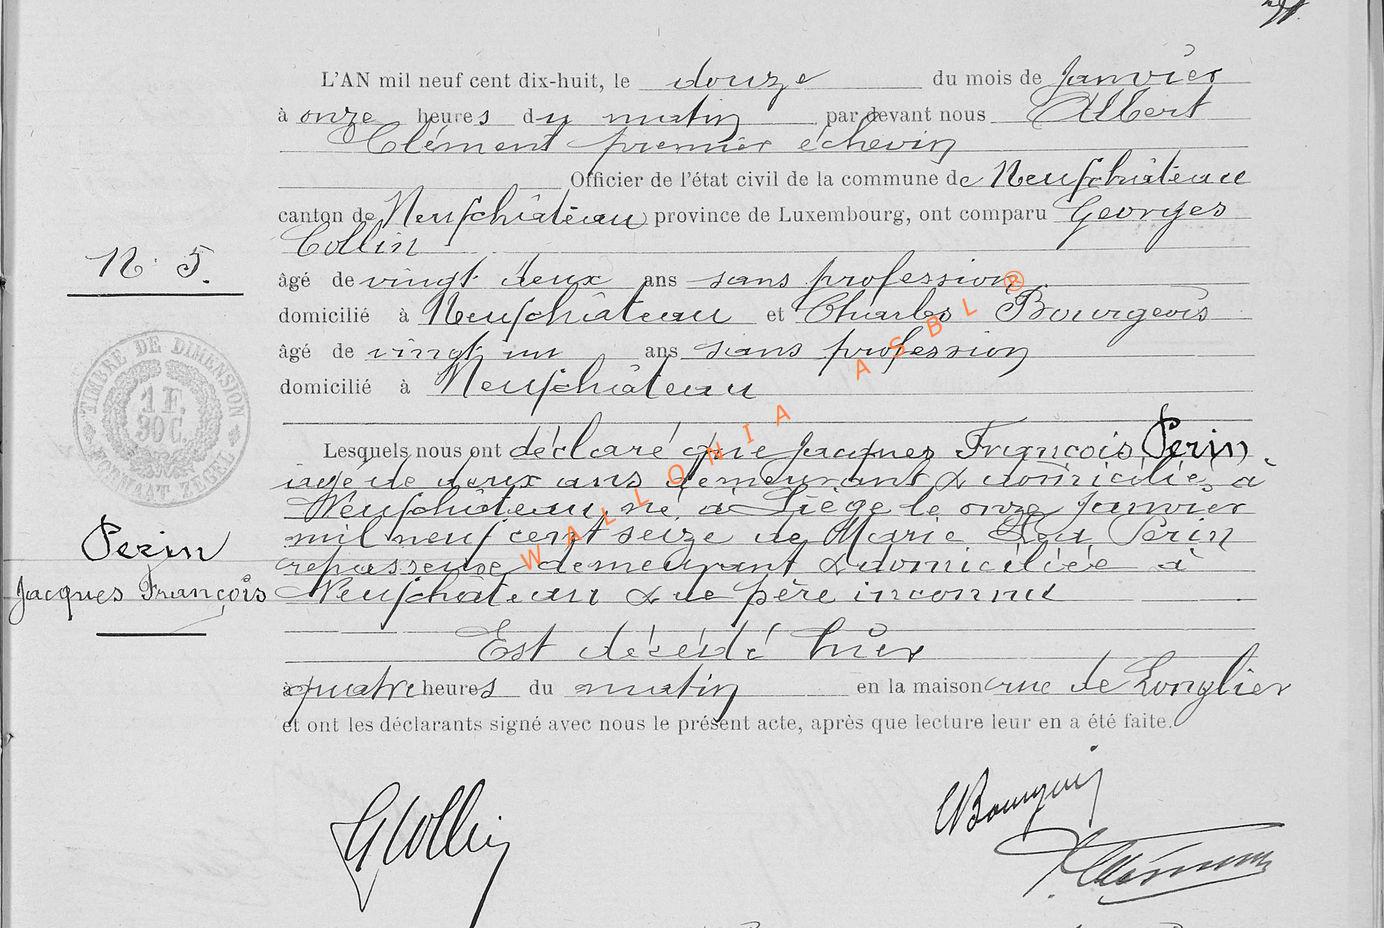 L'AN mil neuf cent dix-huit, le douze du mois de Janvier
à onze heures du matin par devant nous Albert
Clément premier échevin
Officier de l'état civil de la commune de Neufchâteau
canton de Neufchâteau province de Luxembourg, ont comparu Georges
Collin
N° 5.
âgé de vingt deux ans sans profession
domicilié à Neufchâteau et Charles Bourgeois
âgé de vingt un ans sans profession
domicilié à Neufchâteau
TIMBRE DE DIMENSION
1 F.
30 C.
FORMAAT ZEGEL
WALLONIA ASBL ®
Lesquels nous ont déclaré que Jacques François Perin
agé de deux ans demeurant & domicilié à
Neufchâteau, né à Liége le onze Janvier
mil neuf cent seize de Marie Perin
repasseuse demeurant & domiciliée à
Neufchâteau & de père inconnu
Perin
Jacques François
Est décédé hier
à quatre heures du matin en la maison rue de Longlier
et ont les déclarants signé avec nous le présent acte, après que lecture leur en a été faite.
G Collin
C Bourgeois
Clément